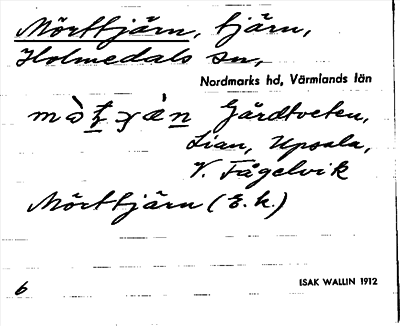 Mörttjärn, tjärn,
Holmedals sn,
Nordmarks hd, Värmlands län
Gårdtveten,
Lian, Upsala,
V. Fågelvik
Mörttjärn (E. h.)
6
ISAK WALLIN 1912